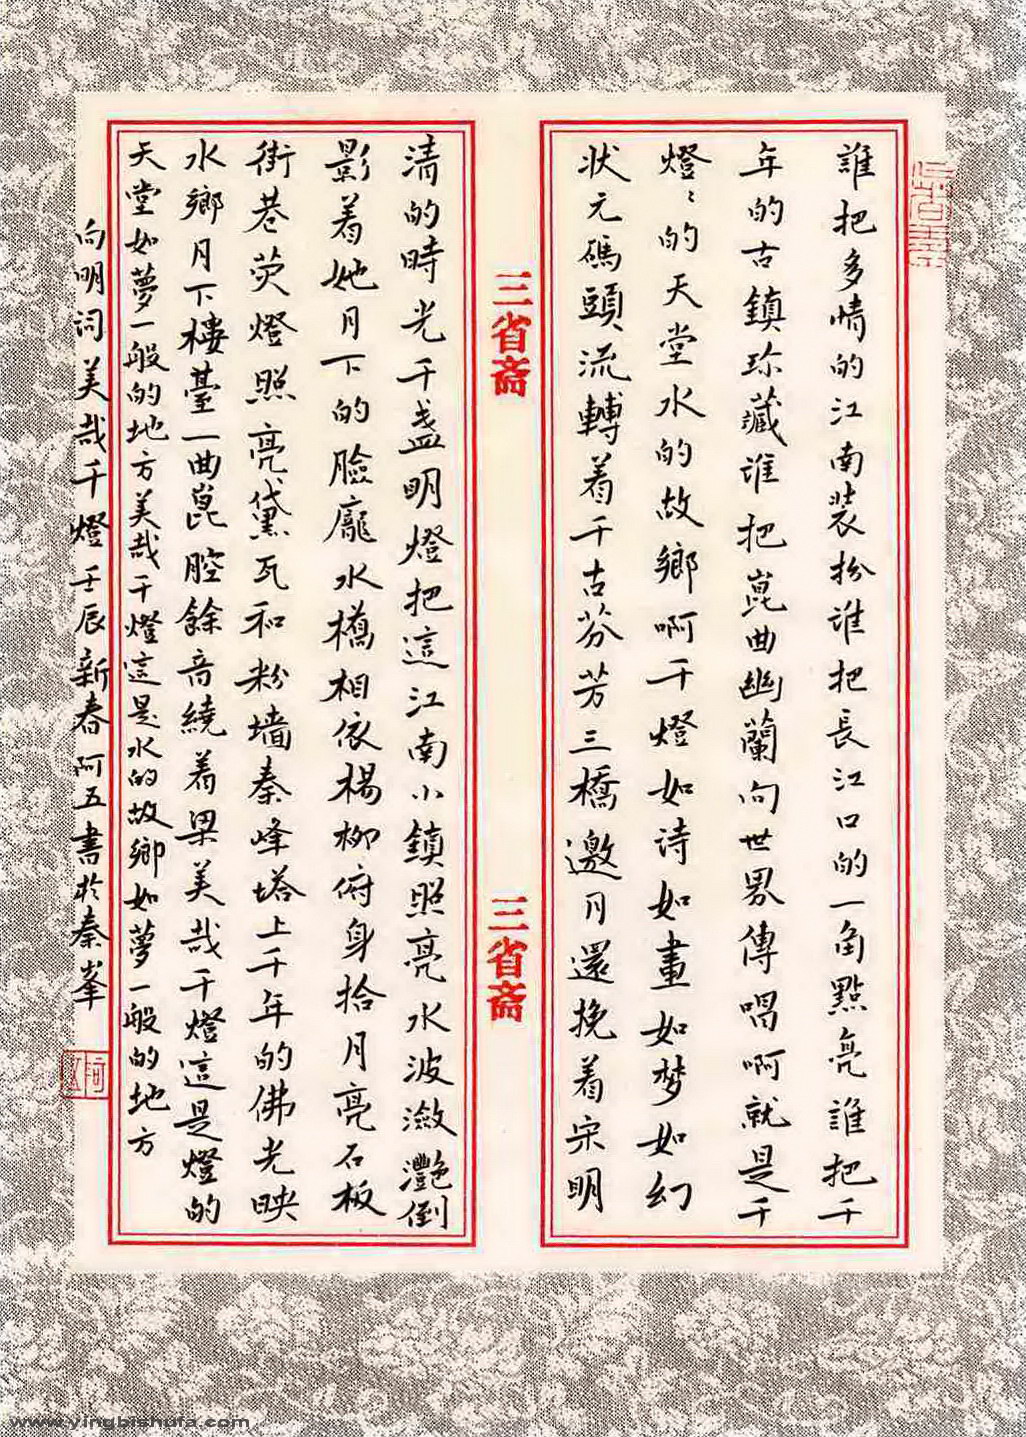 誰把多情的江南装扮谁把長江口的一角點亮誰把千
年的古鎮珎藏谁把崑曲幽蘭向世界傳唱啊就是千
燈〻的天堂水的故鄉啊千燈如诗如畫如梦如幻
状元碼頭流轉着千古芬芳三橋邀月還挽着宋明
三省斋
三省斋
清的時光千盏明燈把這江南小鎮照亮水波潋灧倒
影着她月下的臉龐水橋相依楊柳俯身拾月亮石板
街巷荧燈照亮黛瓦和粉墙秦峰塔上千年的佛光映
水鄉月下樓臺一曲崑腔餘音繞着梁美哉千燈這是燈的
天堂如夢一般的地方美哉千燈這是水的故鄉如夢一般的地方
向明词美哉千燈壬辰新春阿五書於秦峯
www.yingbishufa.com